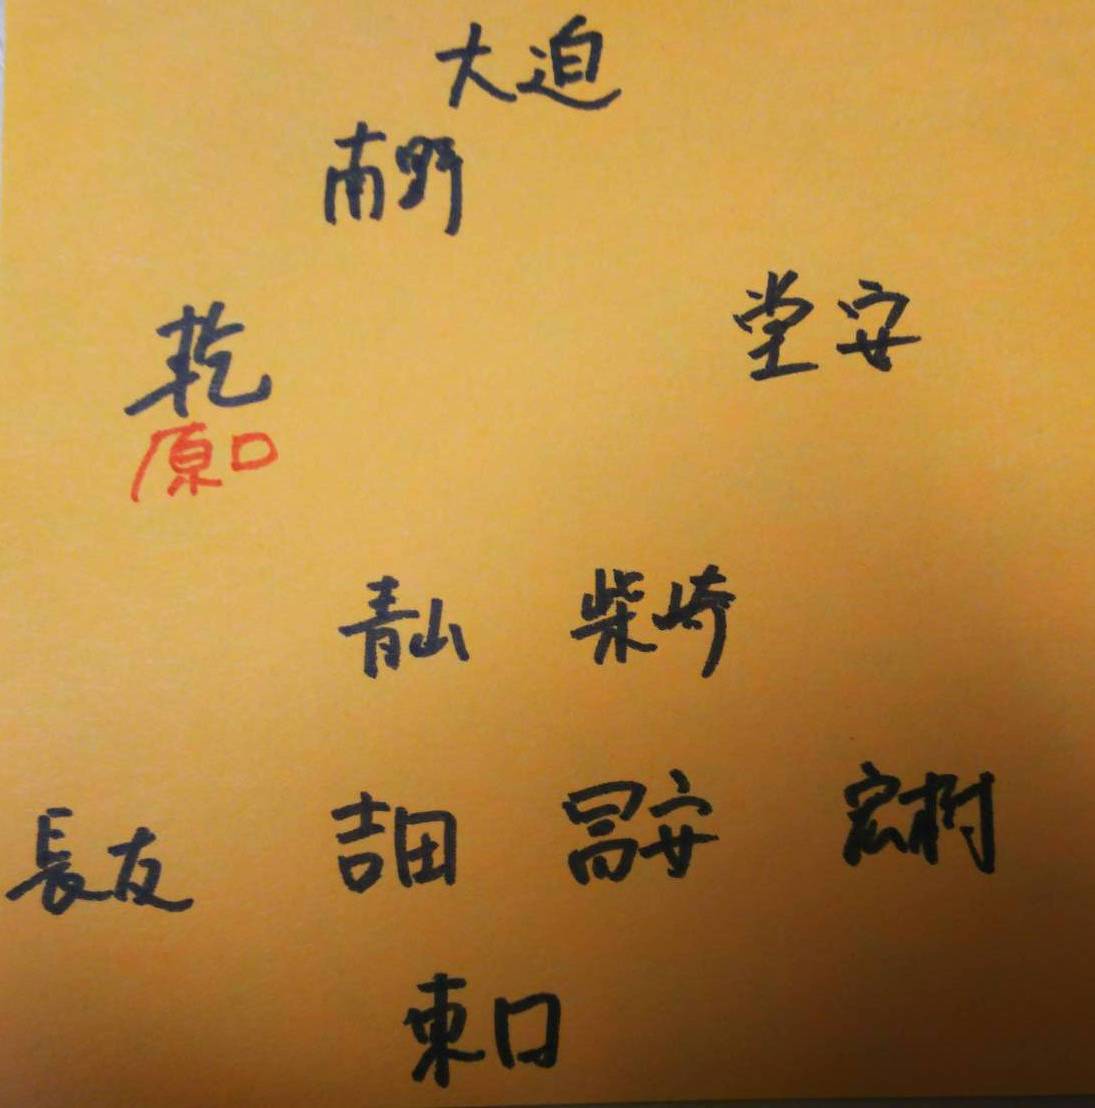 大迫
南野
堂安
乾
原口
青山 柴崎
長友 吉田 冨安 宏樹
東口